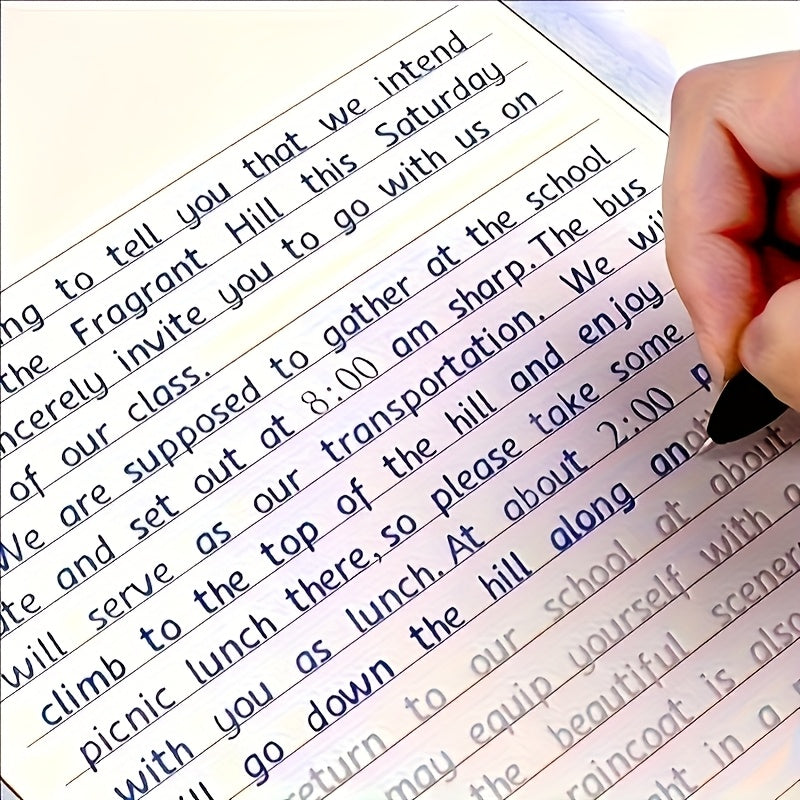 to tell you that we intend
the Fragrant Hill this Saturday
invite you to go with us on
of our class.
We are supposed to gather at the school
and set out at 8:00 am sharp. The bus
will serve as our transportation. We
climb to the top of the hill and enjoy
picnic lunch there, so please take some
with you as lunch. At about 2:00 p
go down the hill along
return to our school at about
may equip yourself with a
the beautiful
raincoat is also
in a